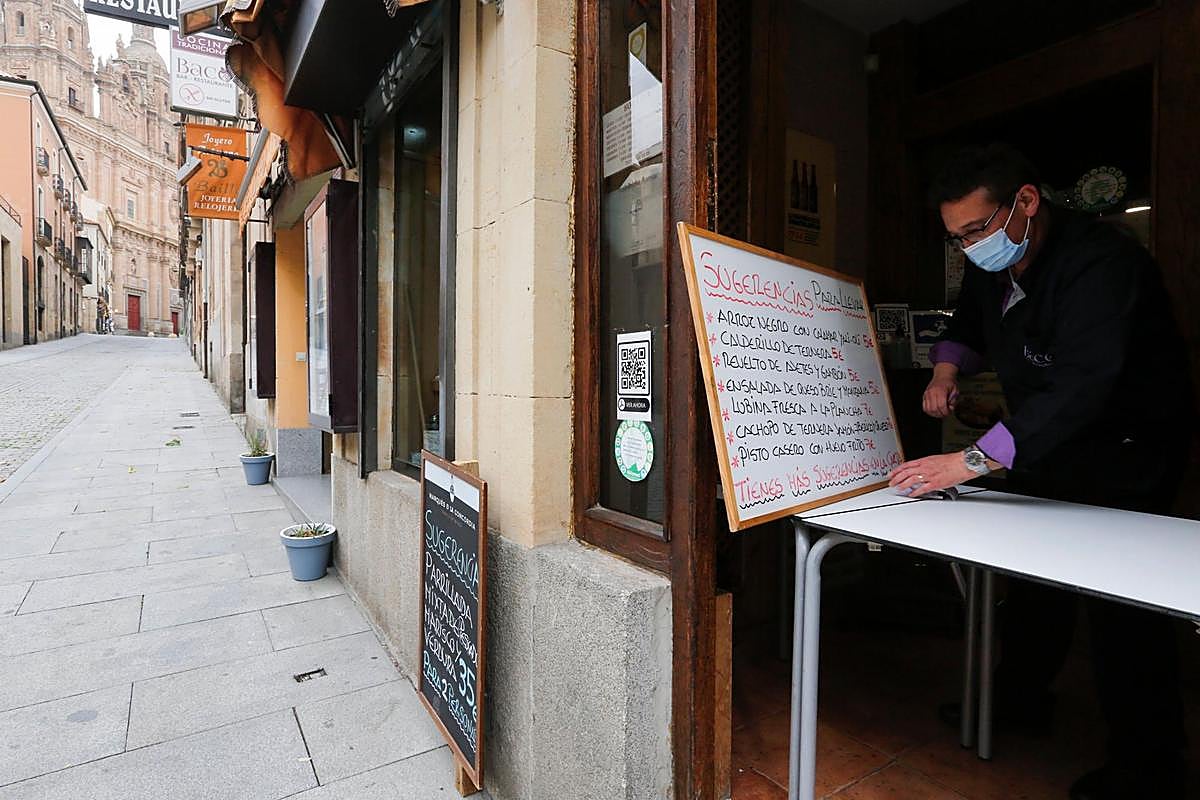 RESTAU
COCINA
TRADICIONAL
Baco
BAR - RESTAURANTE
SIN GLUTEN
Joyero
Baill
JOYERIA
RELOJERIA
VER AHORA
SUGERENCIAS PARA LLEVAR
* ARROZ NEGRO CON CALAMAR Y ALI-OLI 5€
* CALDERILLO DE TERNERA 5€
* REVUELTO DE AJETES Y GAMBÓN 5€
* ENSALADA DE QUESO BRIE Y MANZANA 5€
* LUBINA FRESCA A LA PLANCHA 7€
* CACHOPO DE TERNERA JAMÓN IBÉRICO
* PISTO CASERO CON HUEVO FRITO 7€
TIENES MÁS SUGERENCIAS EN LA
MARQUÉS DE LA CONCORDIA
SUGERENCIA
PARRILLADA
MIXTA DE
MARISCO Y
VERDURA 35€
PARA 2 PERSONAS
baco